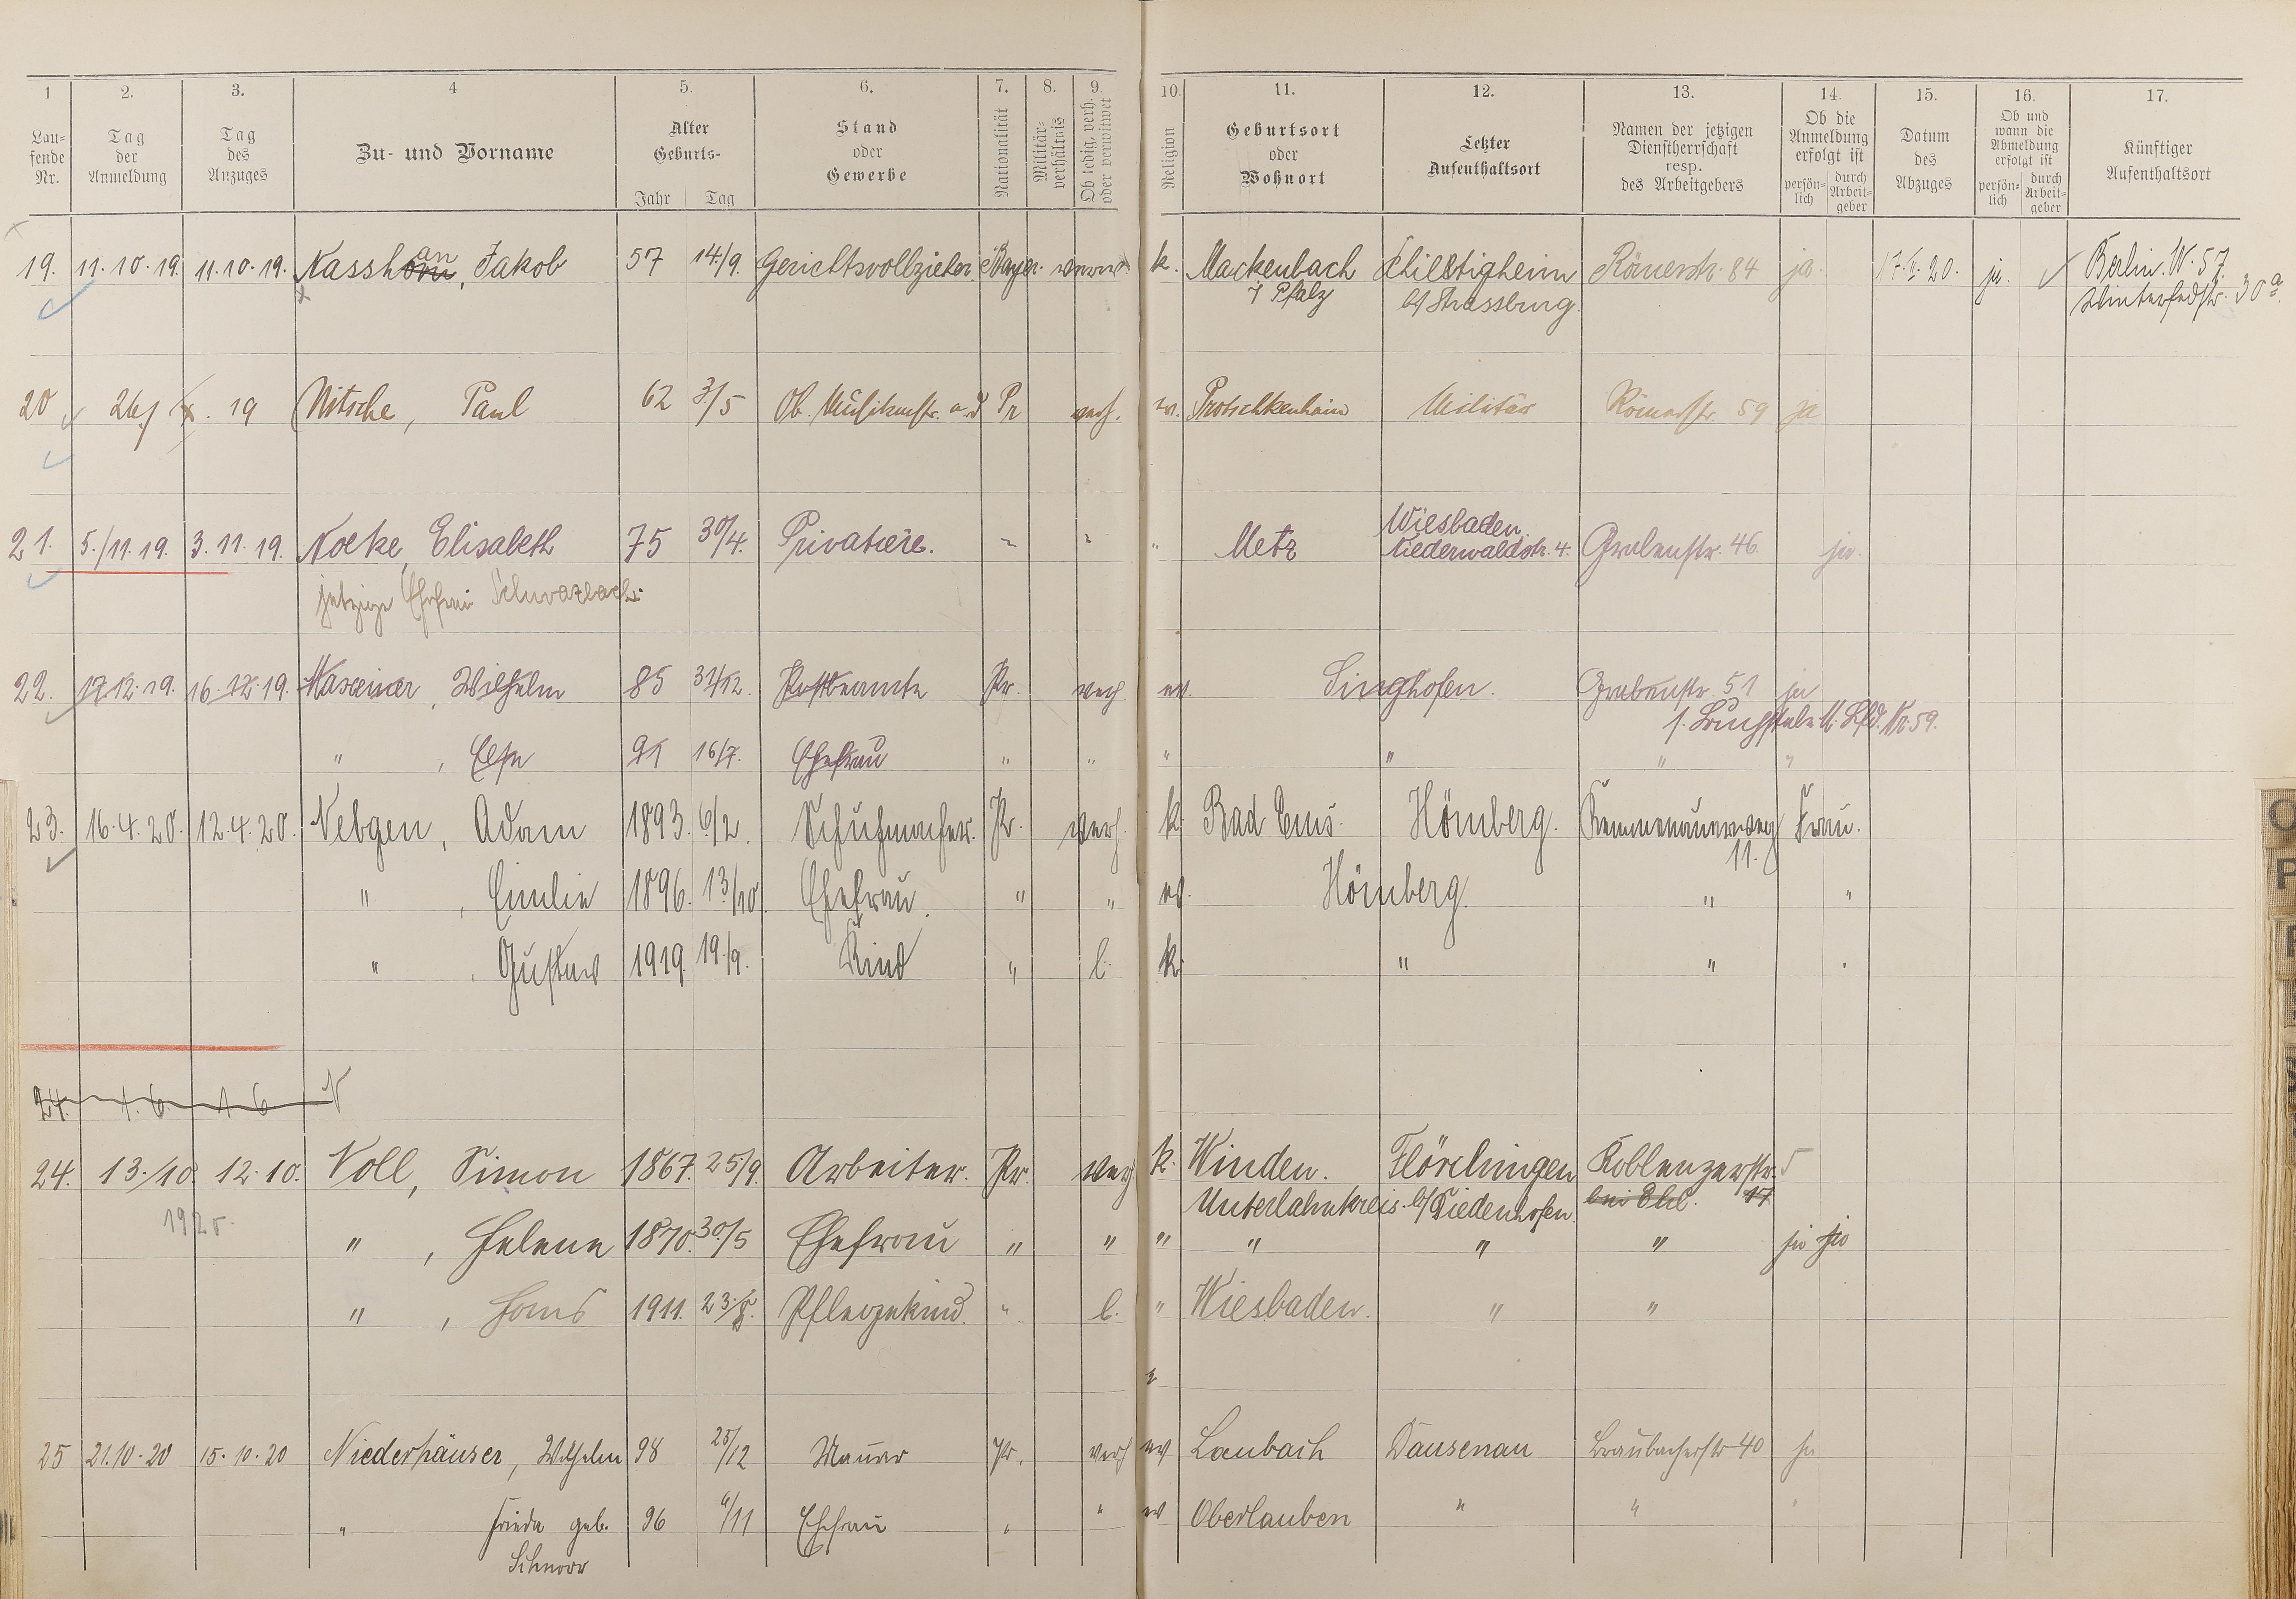 1 2. 3. 4 5. 6. 7. 8. 9. 10. 11. 12. 13. 14. 15. 16. 17.
Laufende Nr. Tag der Anmeldung Tag des Anzuges Zu- und Vorname Alter Geburts- Jahr Tag Stand oder Gewerbe Nationalität Militärverhältnis Ob ledig, verh. oder verwitwet Religion Geburtsort oder Wohnort Letzter Aufenthaltsort Namen der jetzigen Dienstherrschaft resp. des Arbeitgebers Ob die Anmeldung erfolgt ist persönlich durch Arbeitgeber Datum des Abzuges Ob und wann die Abmeldung erfolgt ist persönlich durch Arbeitgeber Künftiger Aufenthaltsort
19. 11.10.19. 11.10.19. Nasshan, Jakob 57 14/9. Gerichtsvollzieher. Bayer. k. Mackenbach Schiltigheim Römerstr. 84 ja. 17. 20. ja. Berlin. W. 57.
i/ Pfalz b/ Strassburg. 30a
20 26/ X. 19 Nitsche, Paul 62 3/5 a.d Pr verh. Protschkenhain Militär Römerstr. 59 ja
21. 5./11.19. 3.11.19. Noeke, Elisabeth 75 30/4. Privatiere. " " " Metz Wiesbaden. Grabenstr. 46. ja.
Niederwaldstr. 4.
jetzige Ehefrau
22. 17.12.19. 16.12.19. Wilhelm 85 31/12. Postbeamte Pr. verh. ev. Singhofen. Grabenstr. 51 ja
Nr. 59.
" , Else 91 16/7. Ehefrau " " " " " "
23. 16.4.20. 12.4.20. Nebgen, Adam 1893. 6/2. Schuhmacher. Pr. verh. k. Bad Ems. Hömberg. Kemmenauerweg Frau.
11.
" , Emilie 1896. 13/10. Ehefrau. " " ev. Hömberg. " "
" , Gustav 1919. 19./9. Kind " l. k. " " "
24. 1.6. 1.6 N
24. 13./10. 12.10. Noll, Simon 1867. 25/9. Arbeiter. Pr. verh. k. Winden. Flörchingen Koblenzerstr. 5
1920. Unterlahnkreis. b/ Diedenhofen. 17
" , Helene 1870. 30./5 Ehefrau " " " " " " ja ja
" , Hans 1911. 23./8. Pflegekind. " l. " Wiesbaden. " "
25 21.10.20 15.10.20 Niederhäuser, Wilhelm 98 25/12 Maurer Pr. verh ev Laubach Dausenau Braubacherstr 40 ja
" Frieda geb. 96 /11 Ehefrau " " ev Oberlauben " " "
Schnorr